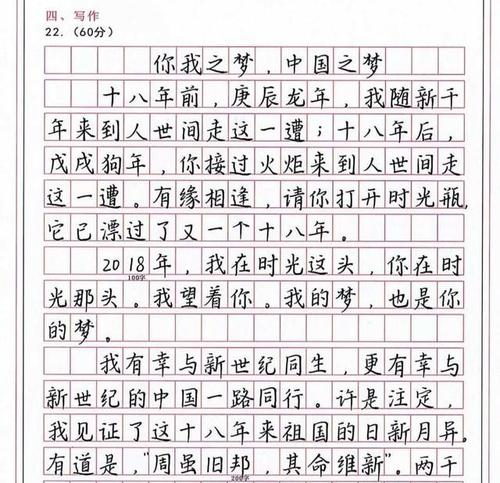 四、写作
22.（60分）
你我之梦，中国之梦
十八年前，庚辰龙年，我随新千
年来到人世间走这一遭；十八年后，
戊戌狗年，你接过火炬来到人世间走
这一遭。有缘相逢，请你打开时光瓶，
它已漂过了又一个十八年。
2018年，我在时光这头，你在时
100字
光那头。我望着你。我的梦，也是你
的梦。
我有幸与新世纪同生，更有幸与
新世纪的中国一路同行。许是注定，
我见证了这十八年来祖国的日新月异。
有道是，"周虽旧邦，其命维新"。两千
200字